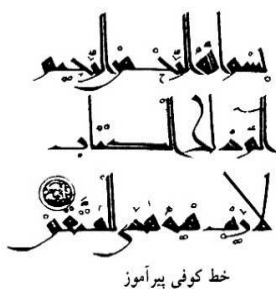 بسم الله الرحمن الرحيم
الم ذلك الكتاب
لا ريب فيه هدى للمتقين
خط کوفی پیرآموز